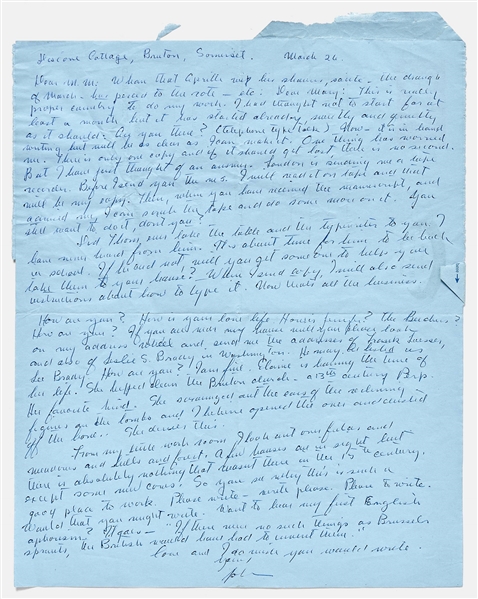 Discove Cottage, Bruton, Somerset. March 24
Dear M.M: Whan that Aprille with his shoures soote – the drought
of March – has perced to the rote – etc: Dear Mary: This is really
proper country to do my work. I had thought not to start for at
least a month but it was started already easily and gently
as it should. Are you there? (Telephone type talk). Now – it is in hand
writing but will be as clear as I can make it. One thing has worried
me. There is only one copy and if it should get lost there is no second.
But I have just thought of an answer. London is sending me a tape
recorder. Before I send you the ms. I will read it on tape and that
will be my copy. Then, when you have received the manuscript, and
 I can scrub the tape and do some more on it. You
still want to do it, don't you?
 Thom, must take the table and the typewriter to you. I
have not heard from him. It is about time for him to be back
in school. If he did not, will you get someone to help you
take them to your house? When I send copy, I will also send
instructions about how to type it. Now that's all the business.
How are you? How is your love life. Homer's family? The Burdens?
How are you? If you are near my house will you please look
on my address wheel and send me the addresses of Frank Loesser,
and also of Leslie S. Brady in Washington. He may be listed as
Les Brady. How are you? I am fine. Elaine is having the time of
her life. She helped clean the Bruton church – a 13th century Perp.
Her favorite kind. She scrounged out the ears of the reclining
figures on the tombs and I believe opened the ones and dusted
off the bones. She denies this.
From my little work room I look out over fields and
meadows and hills and forest. A few houses are in sight but
there is absolutely nothing that wasn't there in the 15th century.
except some new cows. So you see why this is such a
good place to work. Please write – write please. Please to write.
Would that you might write. Want to hear my first English
aphorism? It goes – "If there were no such things as Brussels
sprouts, the British would have had to invent them."
love and I do wish you would write.